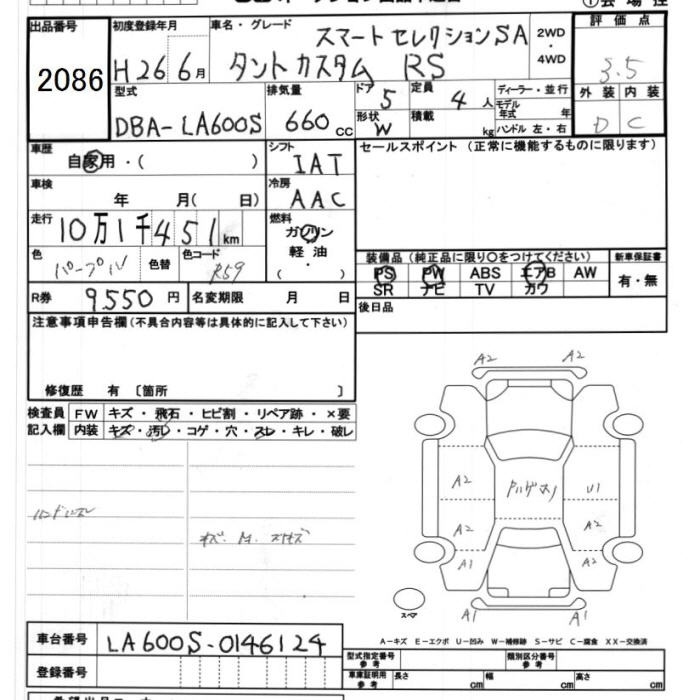 出品番号
2086
初度登録年月
H26 6月
車名・グレード
スマートセレクションSA
タントカスタム RS
2WD
・
4WD
評価点
3.5
外装 内装
D C
型式
DBA-LA600S
排気量
660cc
ドア 5
定員 4人
形状 W
積載 kg
ディーラー・並行
モデル年式 年
ハンドル 左・右
車歴
自家用・( )
シフト
IAT
セールスポイント (正常に機能するものに限ります)
車検
年 月( 日)
冷房
AAC
走行
10万1千451km
燃料
ガソリン
軽油
・
( )
色
パープル
色替
色コード
R59
装備品 (純正品に限り○をつけてください)
PS PW ABS エアB AW
SR ナビ TV カワ
新車保証書
有・無
R券 9550円
名変期限 月 日
後日品
注意事項申告欄(不具合内容等は具体的に記入して下さい)
修復歴 有 〔箇所 〕
検査員
記入欄
FW キズ・飛石・ヒビ割・リペア跡・×要
内装 キズ・汚レ・コゲ・穴・スレ・キレ・破レ
A2 A2
A2 U1
A2 A2
A1 A2
A1 A1
スペア
A-キズ E-エクボ U-凹み W-補修跡 S-サビ C-腐食 XX-交換済
車台番号
LA600S-0146124
登録番号
型式指定番号
参考
類別区分番号
参考
車庫証明用
参考
長さ cm
幅 cm
高さ cm